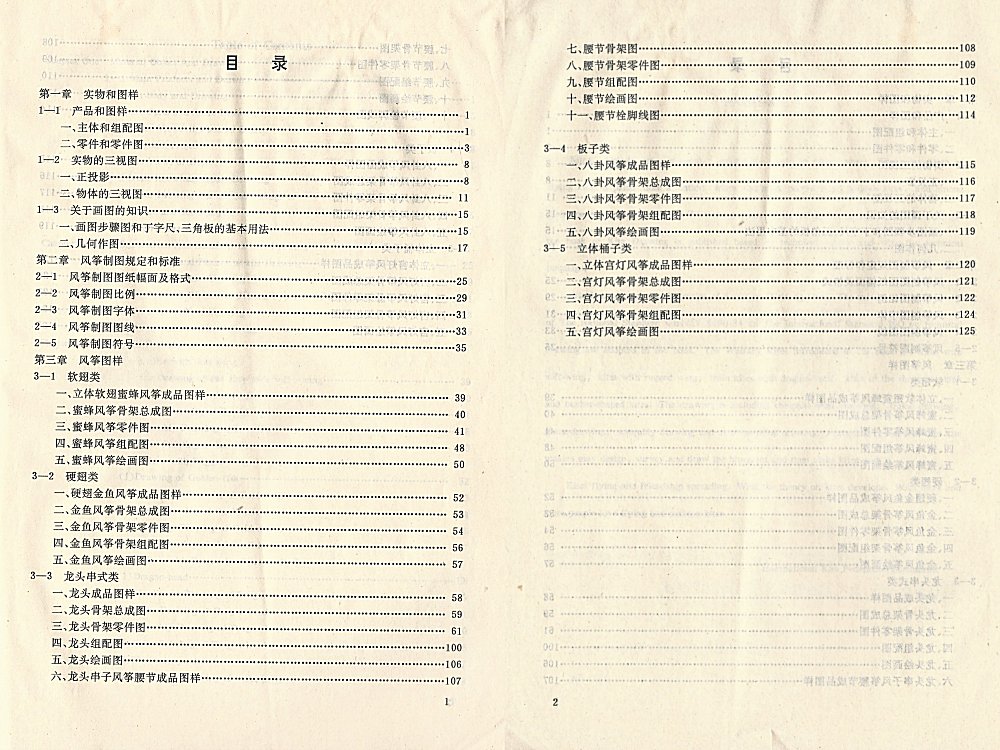 目 录
第一章 实物和图样
1—1 产品和图样……1
一、主体和组配图……1
二、零件和零件图……3
1—2 实物的三视图……8
一、正投影……8
二、物体的三视图……11
1—3 关于画图的知识……15
一、画图步骤图和丁字尺、三角板的基本用法……15
二、几何作图……17
第二章 风筝制图规定和标准
2—1 风筝制图图纸幅面及格式……25
2—2 风筝制图比例……29
2—3 风筝制图字体……31
2—4 风筝制图图线……33
2—5 风筝制图符号……35
第三章 风筝图样
3—1 软翅类
一、立体软翅蜜蜂风筝成品图样……39
二、蜜蜂风筝骨架总成图……40
三、蜜蜂风筝零件图……41
四、蜜蜂风筝组配图……48
五、蜜蜂风筝绘画图……50
3—2 硬翅类
一、硬翅金鱼风筝成品图样……52
二、金鱼风筝骨架总成图……53
三、金鱼风筝骨架零件图……54
四、金鱼风筝骨架组配图……56
五、金鱼风筝绘画图……57
3—3 龙头串式类
一、龙头成品图样……58
二、龙头骨架总成图……59
三、龙头骨架零件图……61
四、龙头组配图……100
五、龙头绘画图……106
六、龙头串子风筝腰节成品图样……107
1
七、腰节骨架图……108
八、腰节骨架零件图……109
九、腰节组配图……110
十、腰节绘画图……112
十一、腰节栓脚线图……114
3—4 板子类
一、八卦风筝成品图样……115
二、八卦风筝骨架总成图……116
三、八卦风筝骨架零件图……117
四、八卦风筝骨架组配图……118
五、八卦风筝绘画图……119
3—5 立体桶子类
一、立体宫灯风筝成品图样……120
二、宫灯风筝骨架总成图……121
三、宫灯风筝骨架零件图……122
四、宫灯风筝骨架组配图……124
五、宫灯风筝绘画图……125
2